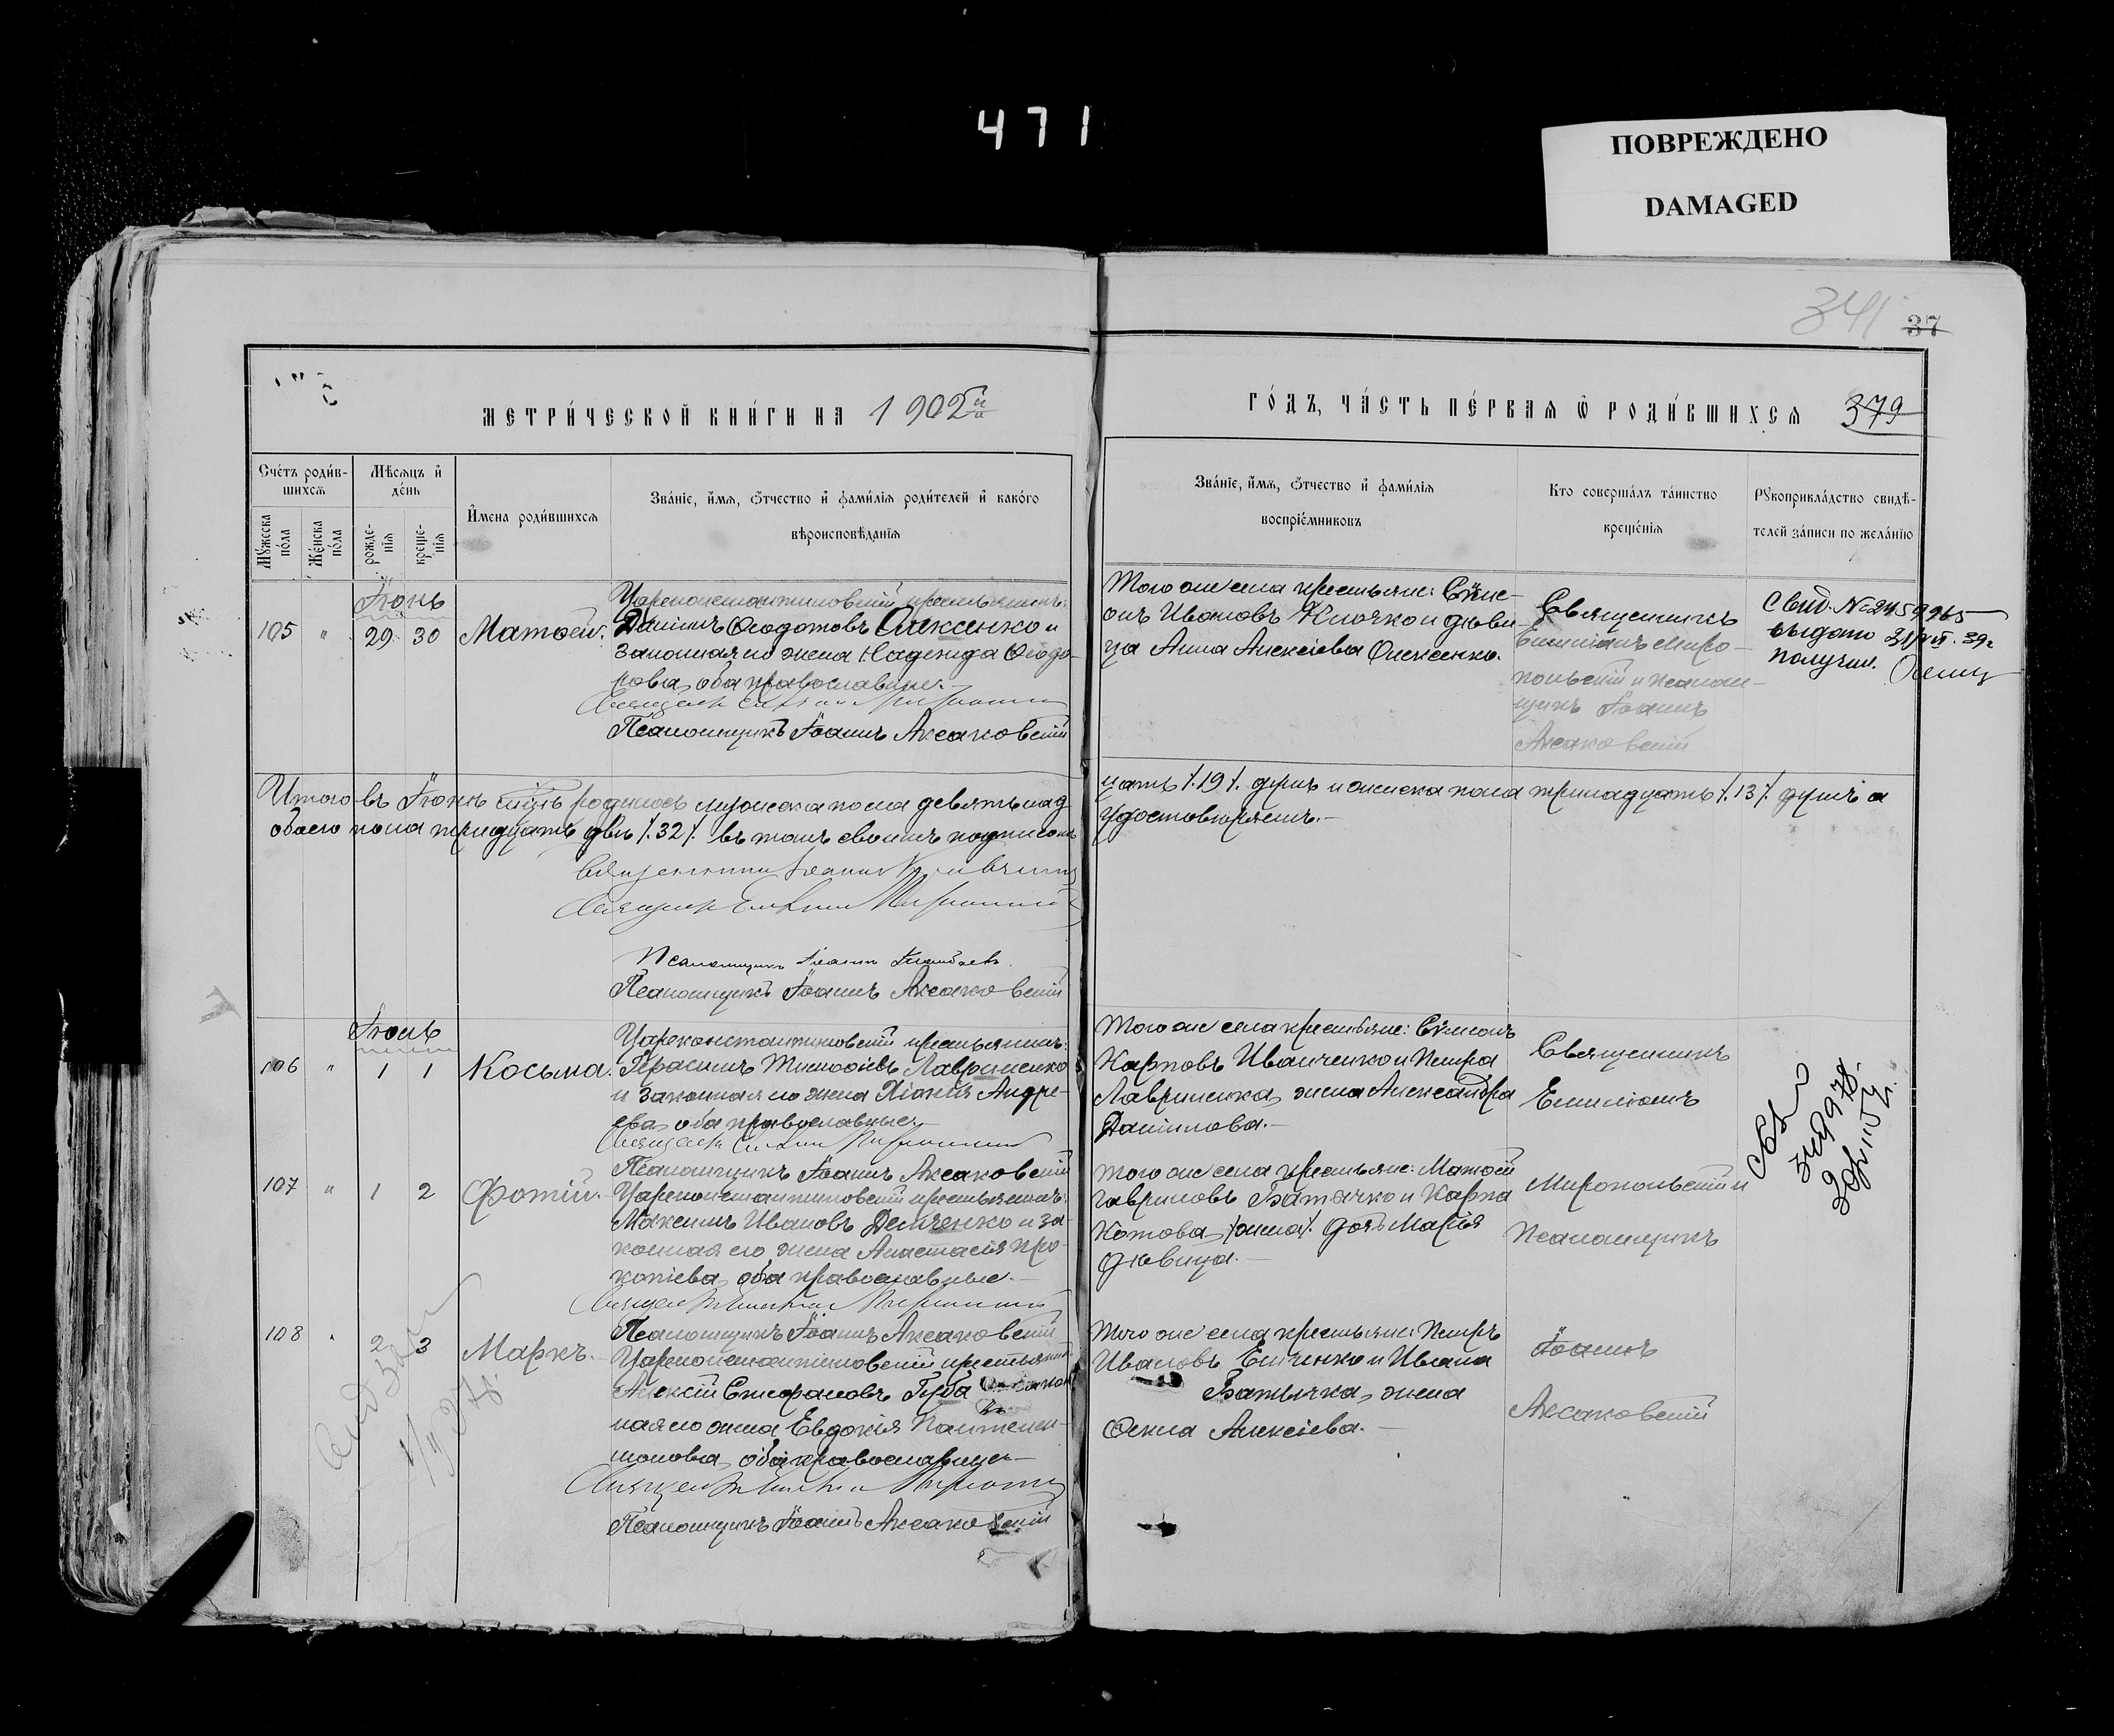 471
ПОВРЕЖДЕНО
DAMAGED
341 37
МЕТРИ́ЧЕСКОЙ КНИ́ГИ НА 1902й
ГО́ДЪ, ЧА́СТЬ ПЕ́РВАѦ Ѿ РОДИ́ВШИХСѦ 379
Сче́тъ роди́в-
шихсѧ
Мѣ́сѧцъ и҆
де́нь
Мꙋ́жеска
по́ла
Же́нска
по́ла
рожде-
нїѧ
креще-
нїѧ
И҆мена роди́вшихсѧ
Зва́нїе, и҆́мѧ, ѻ҆́тчество и҆ фами́лїѧ роди́телей и҆ како́го
вѣроисповѣ́данїѧ
Зва́нїе, и҆́мѧ, ѻ҆́тчество и҆ фами́лїѧ
воспрїе́мниковъ
Кто соверша́лъ та́инство
креще́нїѧ
Рꙋкоприкла́дство свидѣ́-
телей за́писи по жела́нїю
Іюнь
105 " 29 30 Матѳей.
Цареконстантиновскій крестьянинъ:
Даніилъ Ѳеодотовъ Олексенко и
законная его жена Надежда Ѳеодо-
рова, оба православные.
Псаломщикъ Іоаннъ Аксаковскій
Того же села крестьяне: Сѵме-
онъ Ивановъ Клочко и дѣви-
ца Анна Алексіева Олексенко.
Священникъ
Емиліанъ Миро-
польскій и псалом-
щикъ Іоаннъ
Аксаковскій
Свид. №
выдано
получил.
Итого въ Іюнѣ мѣсяцѣ родилось мужеска пола девятьнад
цать /.19/. душъ и женска пола тринадцать /.13/. душъ а
обоего пола тридцать двѣ /.32/. въ томъ своимъ подписомъ
удостовѣряемъ.
Священникъ Іоаннъ
Священникъ Емиліанъ Миропольскій
Псаломщикъ Іоаннъ
Псаломщикъ Іоаннъ Аксаковскій
Іюль
106 " 1 1 Косьма.
Цареконстантиновскій крестьянинъ:
Герасимъ Тимоѳіевъ Лавриненко
и законная его жена Хіонія Андре-
ева, оба православные.
Псаломщикъ Іоаннъ Аксаковскій
Того же села крестьяне: Сѵмеонъ
Карповъ Иванченко и Петра
Лавриненка, жена Александра
Даніилова.
Священникъ
Емиліанъ
107 " 1 2 Фотій.
Цареконстантиновскій крестьянинъ:
Максимъ Ивановъ Демченко и за-
конная его жена Анастасія Про-
копіева, оба православные.
Псаломщикъ Іоаннъ Аксаковскій
Того же села крестьяне: Матѳій
Гавриловъ Батечко и Карпа
Котова /жена/. дочь Марія
дѣвица.
Миропольскій и
Псаломщикъ
108 " 2 3 Маркъ.
Цареконстантиновскій крестьянинъ
Алексій Стефановъ Губа и закон
ная его жена Евдокія Пантелей-
монова, оба православные
Псаломщикъ Іоаннъ Аксаковскій
Того же села крестьяне: Петръ
Ивановъ Емченко и Ивана
Батечка, жена
Ѳекла Алексіева.
Іоаннъ
Аксаковскій